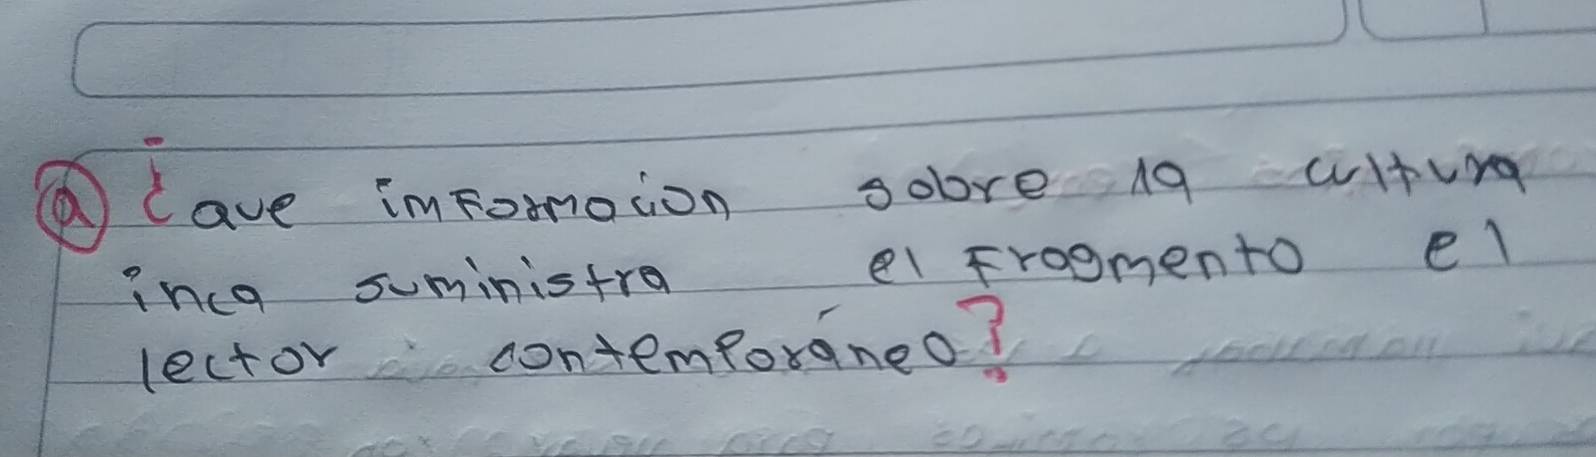 a) ¿Que imFormación sobre la cultura
inca suministra el Fragmento el
lector contemporáneo?